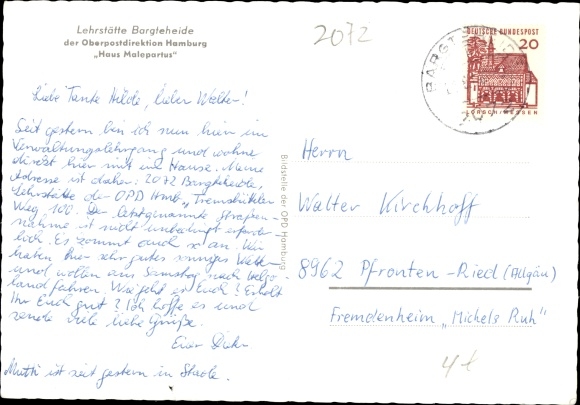 Lehrstätte Bargteheide
der Oberpostdirektion Hamburg
„Haus Malepartus"
2072
DEUTSCHE BUNDESPOST
20
LORSCH/HESSEN
BARGTE
Liebe Tante Hilde, lieber Walter!
Seit gestern bin ich nun hier im
Verwaltungslehrgang und wohne
direkt hier mit im Hause. Meine
Adresse ist daher: 2072 Bargteheide,
Lehrstätte der OPD Hmb., Tremsbütteler
Weg 100. Der letztgenannte Straßen-
nahme ist nicht unbedingt erforder-
lich. Es kommt auch so an. Wir
haben hier sehr gutes sonniges Wetter
und wollen am Samstag nach Helgo-
land fahren. Wie geht es Euch? Erholt
Ihr Euch gut? Ich hoffe es und
sende viele liebe Grüße.
Euer
Mutti ist seit gestern in Stade.
Bildstelle der OPD Hamburg
Herrn
Walter Kirchhoff
8962 Pfronten-Ried (Allgäu)
Fremdenheim „Michels Ruh"